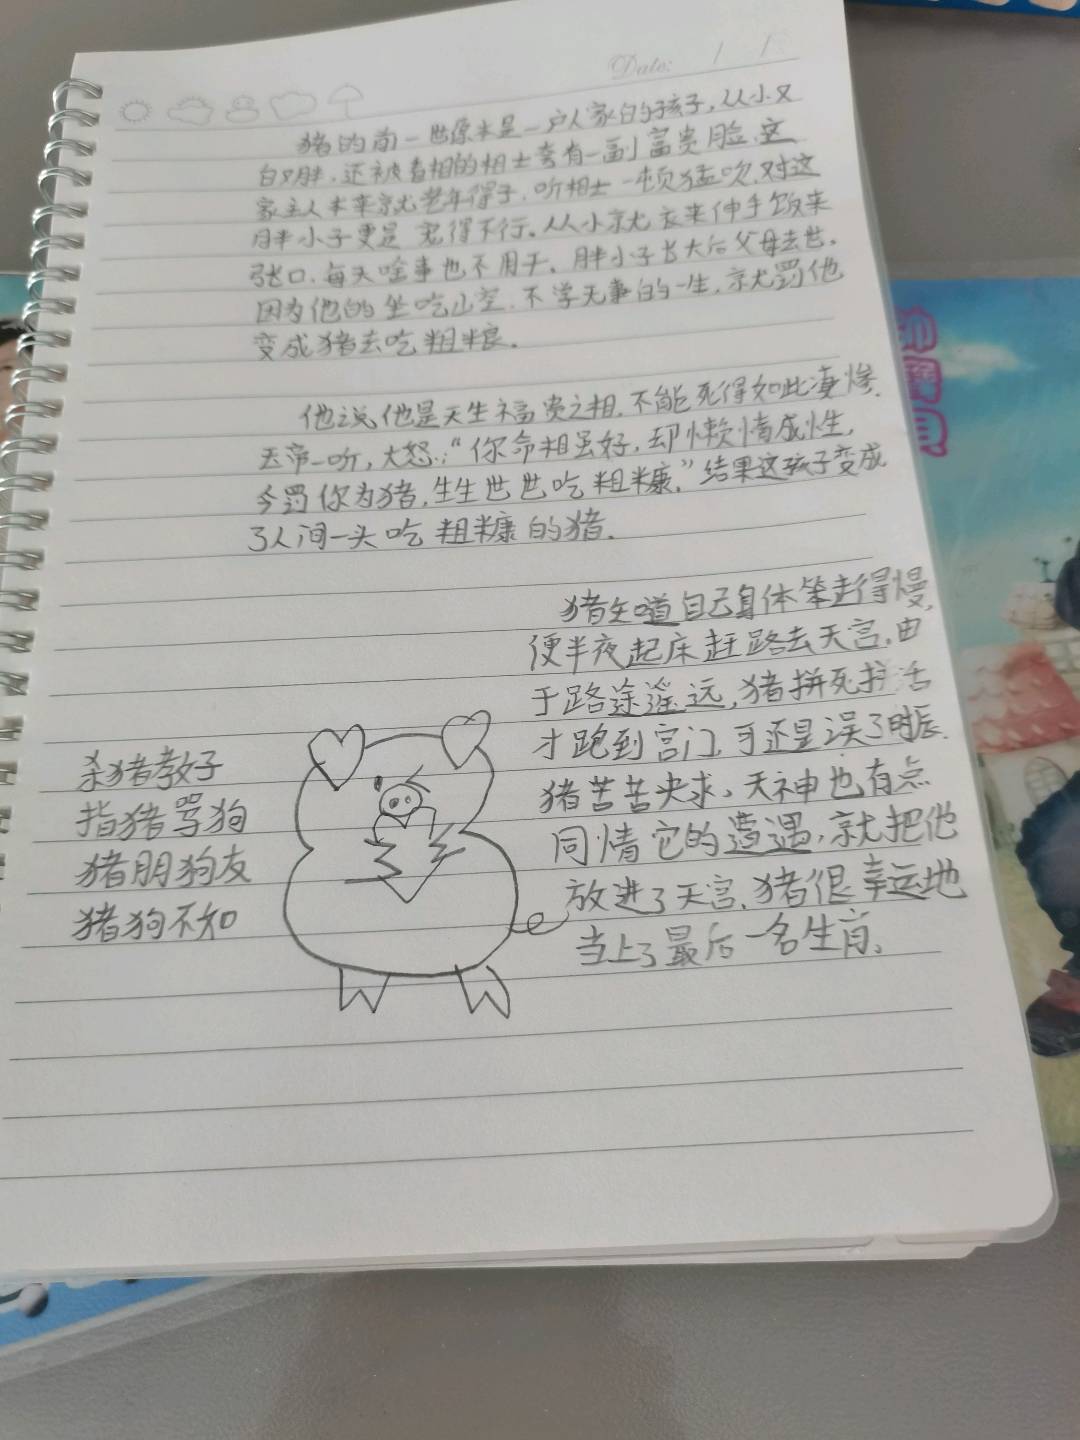 Date:
猪的前一世原本是一户人家的孩子,从小又
白又胖.还被看相的相士夸有一副富贵脸.这
家主人本来就老年得子.听相士一顿猛吹.对这
胖小子更是宠得不行.从小就衣来伸手饭来
张口.每天啥事也不用干.胖小子长大后父母去世.
因为他的坐吃山空.不学无事的一生,就罚他
变成猪去吃粗粮.
他说他是天生福贵之相.不能死得如此凄惨.
玉帝一听,大怒:“你命相虽好,却懒惰成性,
今罚你为猪,生生世世吃粗糠.”结果这孩子变成
了人间一头吃粗糠的猪.
猪知道自己身体笨走得慢,
便半夜起床赶路去天宫,由
于路途遥远,猪拼死拼活
才跑到宫门,可还是误了时辰.
猪苦苦央求,天神也有点
同情它的遭遇,就把他
放进了天宫.猪很幸运地
当上了最后一名生肖.
杀猪教子
指猪骂狗
猪朋狗友
猪狗不如